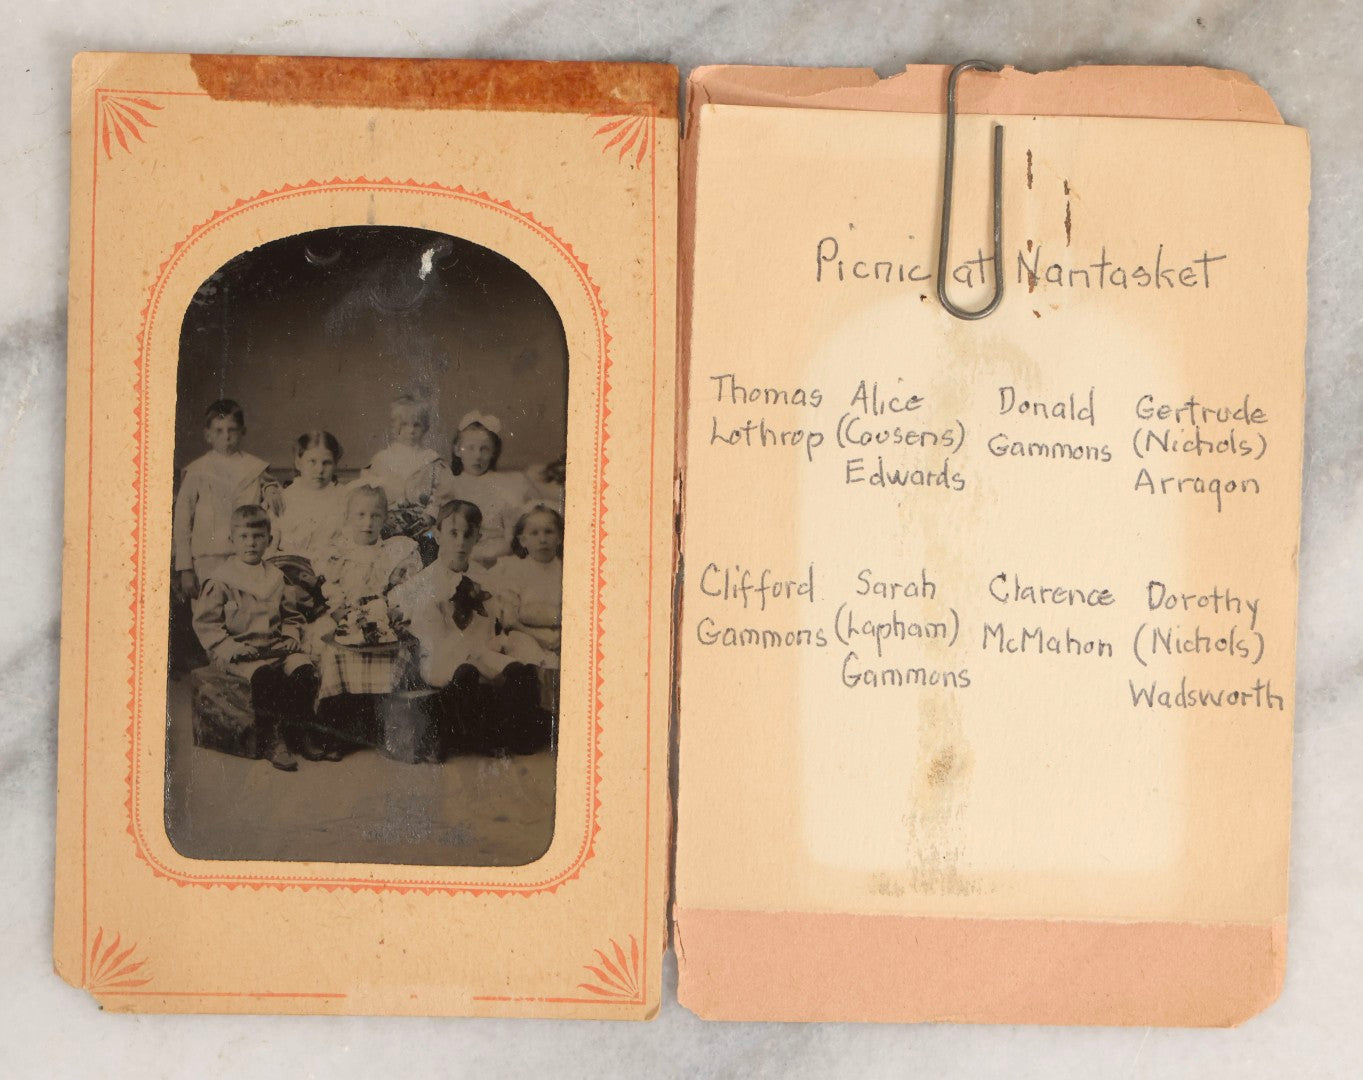 Picnic at Nantasket
Thomas Alice Donald Gertrude
Lothrop (Cousens) Gammons (Nichols)
Edwards Arragon
Clifford Sarah Clarence Dorothy
Gammons (Lapham) McMahon (Nichols)
Gammons Wadsworth